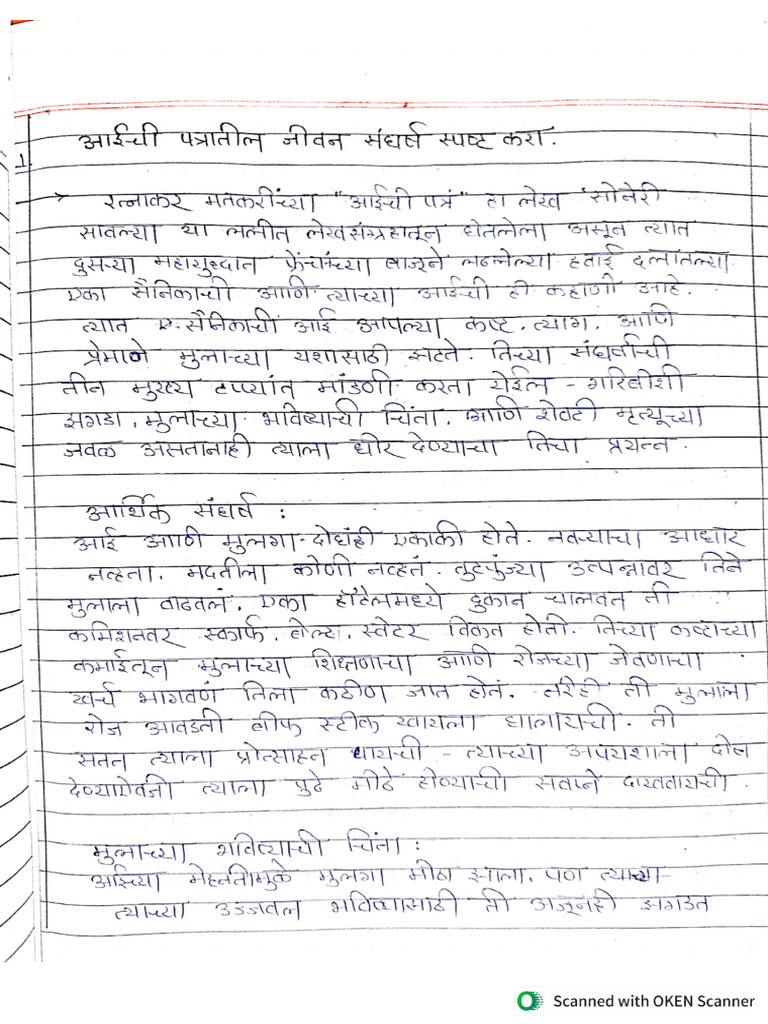 आईची पत्रातील जीवन संघर्ष स्पष्ट करा.
1
→ रत्नाकर मतकरींच्या "आईची पत्रं" हा लेख 'सोनेरी
सावल्या या ललीत लेखसंग्रहातून घेतलेला असून त्यात
दुसऱ्या महायुध्दात फ्रेंचांच्या बाजूने लढलेल्या हवाई दलातल्या
एका सैनिकाची आणि त्याच्या आईची ही कहाणी आहे.
त्यात ए. सैनिकाची आई आपल्या कष्ट, त्याग, आणि
प्रेमाने मुलाच्या यशासाठी झटते. तिच्या संघर्षाची
तीन मुख्य टप्प्यांत मांडणी करता येईल - गरिबीशी
झगडा, मुलाच्या भविष्याची चिंता, आणि शेवटी मृत्यूच्या
जवळ असतानाही त्याला धीर देण्याचा तिचा प्रयत्न.
आर्थिक संघर्ष :
आई आणि मुलगा दोघंही एकाकी होते. नवऱ्याचा आधार
नव्हता, मदतीला कोणी नव्हतं. तुटपुंज्या उत्पन्नावर तिने
मुलाला वाढवलं. एका हॉटेलमध्ये दुकान चालवत ती
कमिशनवर स्कार्फ, बेल्ट, स्वेटर विकत होती. तिच्या कष्टाच्या
कमाईतून मुलाच्या शिक्षणाचा आणि रोजच्या जेवणाचा
खर्च भागवणं तिला कठीण जात होतं. तरीही ती मुलाला
रोज आवडती बीफ स्टीक खायला घालायची. ती
सतत त्याला प्रोत्साहन द्यायची - त्याच्या अपयशाला दोष
देण्याऐवजी त्याला पुढे मोठे होण्याची स्वप्ने दाखवायची.
मुलाच्या भवितव्याची चिंता :
आईच्या मेहनतीमुळे मुलगा मोठा झाला, पण
त्याच्या उज्जवल भविष्यासाठी ती अजूनही झगडत
Scanned with OKEN Scanner